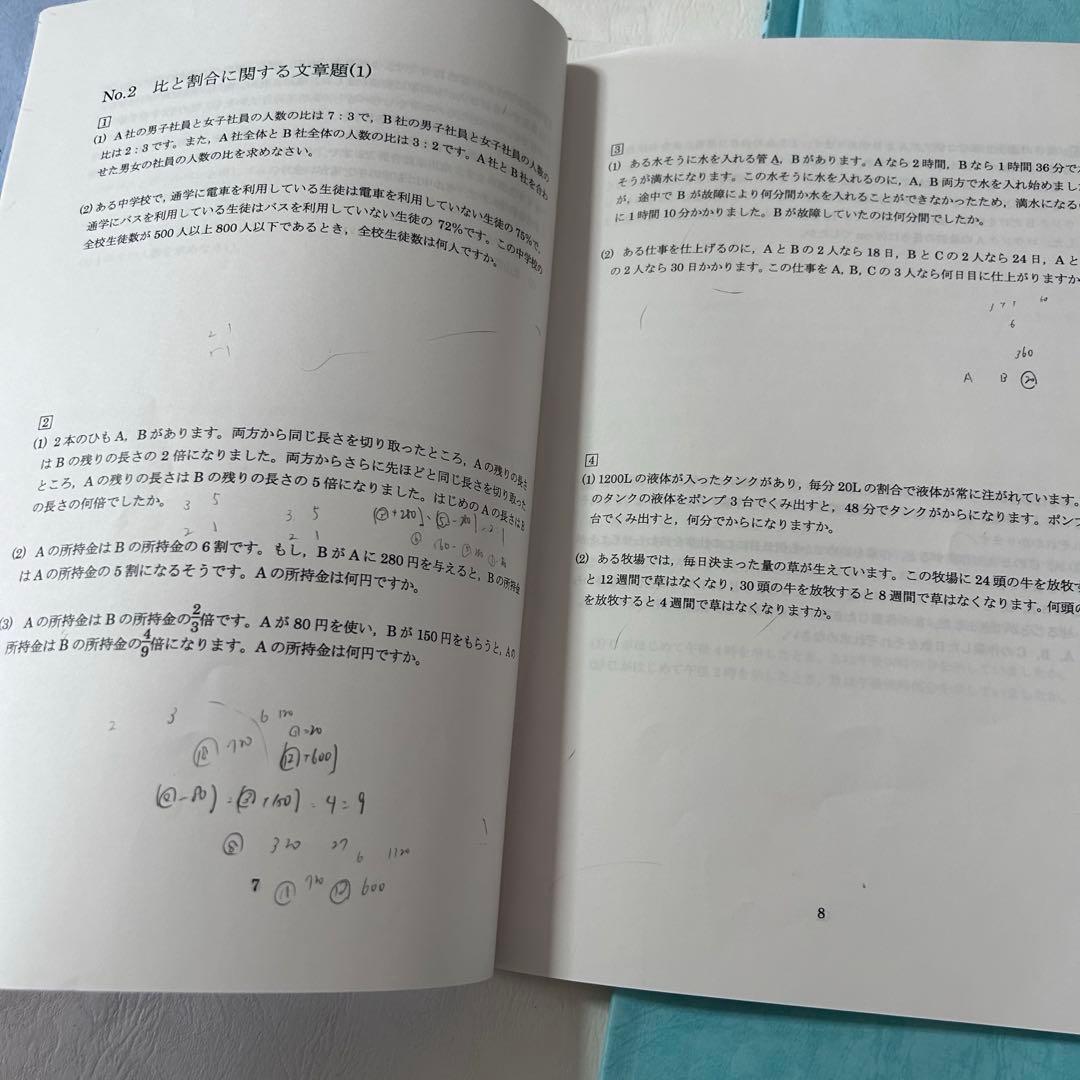 No.2 比と割合に関する文章題(1)
1
(1) A社の男子社員と女子社員の人数の比は7:3で,B社の男子社員と女子社員の人数の
比は2:3です。また,A社全体とB社全体の人数の比は3:2です。A社とB社を合わ
せた男女の社員の人数の比を求めなさい。
(2) ある中学校で,通学に電車を利用している生徒は電車を利用していない生徒の75%で,
通学にバスを利用している生徒はバスを利用していない生徒の72%です。この中学校の
全校生徒数が500人以上800人以下であるとき,全校生徒数は何人ですか。
2 1
2
(1) 2本のひもA,Bがあります。両方から同じ長さを切り取ったところ,Aの残りの長さ
はBの残りの長さの2倍になりました。両方からさらに先ほどと同じ長さを切り取った
ところ,Aの残りの長さはBの残りの長さの5倍になりました。はじめのAの長さはB
の長さの何倍でしたか。
3 5 3 5
2 1 2 1
(2) Aの所持金はBの所持金の6割です。もし,BがAに280円を与えると,Bの所持金
はAの所持金の5割になるそうです。Aの所持金は何円ですか。
(3) Aの所持金はBの所持金の2/3倍です。Aが80円を使い,Bが150円をもらうと,Aの
所持金はBの所持金の4/9倍になります。Aの所持金は何円ですか。
2 3 6 120
⑱ 720 (⑫+600)
(②-80) = (③+150) = 4 = 9
320 27
6 1320
7
720 600
3
(1) ある水そうに水を入れる管A,Bがあります。Aなら2時間,Bなら1時間36分で
そうが満水になります。この水そうに水を入れるのに,A,B両方で水を入れ始めまし
が,途中でBが故障により何分間か水を入れることができなかったため,満水になるの
に1時間10分かかりました。Bが故障していたのは何分間でしたか。
(2) ある仕事を仕上げるのに,AとBの2人なら18日,BとCの2人なら24日,Aと
の2人なら30日かかります。この仕事をA,B,Cの3人なら何日目に仕上がりますか
60
6
360
A B ⑳
4
(1) 1200Lの液体が入ったタンクがあり,毎分20Lの割合で液体が常に注がれています。
のタンクの液体をポンプ3台でくみ出すと,48分でタンクがからになります。ポンプ
台でくみ出すと,何分でからになりますか。
(2) ある牧場では,毎日決まった量の草が生えています。この牧場に24頭の牛を放牧す
と12週間で草はなくなり,30頭の牛を放牧すると8週間で草はなくなります。何頭の
を放牧すると4週間で草はなくなりますか。
8